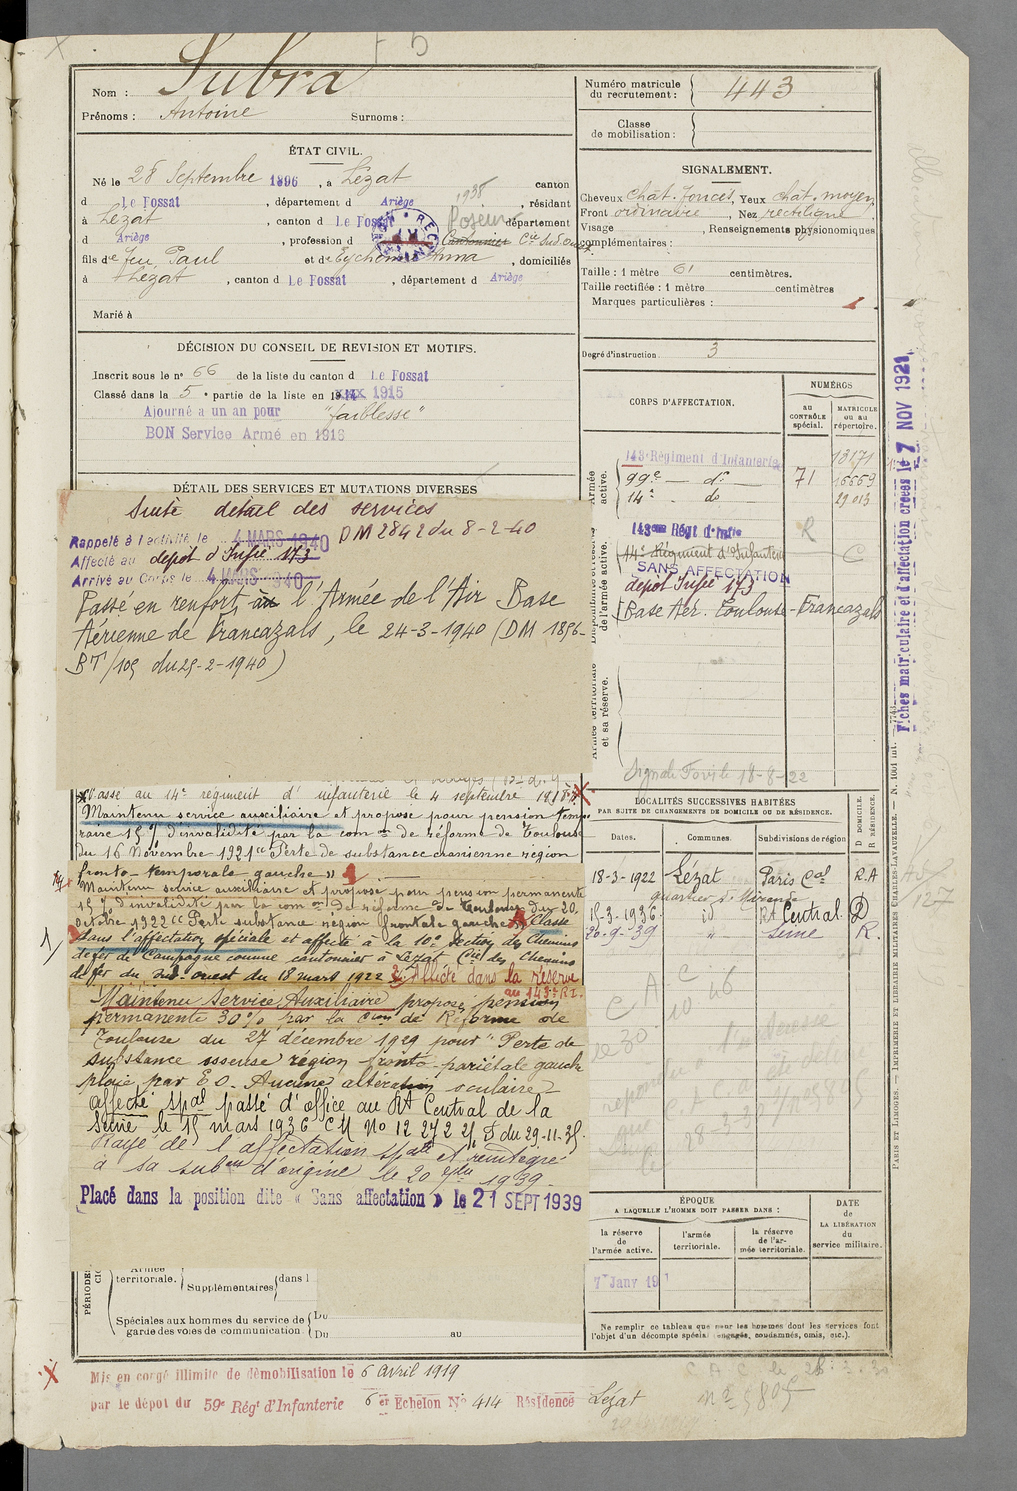 Nom : Subra
Prénoms : Antoine Surnoms :
Numéro matricule du recrutement : 443
Classe de mobilisation :
ÉTAT CIVIL.
Né le 28 Septembre 1896, à Lézat canton
d Le Fossat, département d Ariège, résidant
1938
à Lézat, canton d Le Fossat département
Poseur
d Ariège, profession d Cantonnier Cie Sud.Ouest
fils de feu Paul et de Eychenne Anna, domiciliés
à Lézat, canton d Le Fossat, département d Ariège
Marié à
SIGNALEMENT.
Cheveux chât. foncés, Yeux chât. moyen
Front ordinaire, Nez rectiligne
Visage , Renseignements physionomiques
complémentaires :
Taille : 1 mètre 61 centimètres.
Taille rectifiée : 1 mètre centimètres
Marques particulières :
Degré d'instruction 3
DÉCISION DU CONSEIL DE REVISION ET MOTIFS.
Inscrit sous le n° 66 de la liste du canton d Le Fossat
Classé dans la 5e partie de la liste en 1915
Ajourné a un an pour "faiblesse"
BON Service Armé en 1916
DÉTAIL DES SERVICES ET MUTATIONS DIVERSES
Suite détail des services
Rappelé à l'activité le 4 MARS 1940 DM 2842 du 8-2-40
Affecté au dépot d'Infie 173
Arrivé au Corps le 4 MARS 1940
Passé en renfort, au l'Armée de l'Air Base
Aérienne de Francazals, le 24-3-1940 (DM 1896-
BT/105 du 25-2-1940)
CORPS D'AFFECTATION.
NUMÉROS
au CONTRÔLE spécial.
MATRICULE ou au répertoire.
Armée active.
143e Régiment d'Infanterie 13171
99e — do — 71 16669
14e - do 29013
de l'armée active.
143eme Régt d'Infie R
14e Régiment d'Infanterie C
SANS AFFECTATION
dépot Infie 173
Base Aér. Toulouse-Francazals
Armée territoriale et sa réserve.
Signalé Fovile 18-8-22
Fiches matriculaire et d'affectation créées le 7 NOV 1921.
Passé au 14e régiment d'infanterie le 4 septembre 1918
Maintenu service auxiliaire et proposé pour pension tempo-
raire 15 % d'invalidité par la com on de réforme de Toulouse
du 16 Novembre 1921 "Perte de substance cranienne région
fronto-temporale gauche"
Maintenu service auxiliaire et proposé pour pension permanente
15 % d'invalidité par la com on de réforme de Toulouse du 20
octobre 1922 "Perte substance région frontale gauche" Classé
dans l'affectation spéciale et affecté à la 10e Section des Chemins
de fer de Campagne comme cantonnier à Lézat Cie des Chemins
de fer du Sud-ouest du 18 mars 1922 Affecté dans la réserve
au 143e R.I.
Maintenu Service Auxiliaire proposé pension
permanente 30% par la Cion de Réforme de
Toulouse du 27 décembre 1929 pour "Perte de
substance osseuse région fronto-pariétale gauche
plaie par E O. Aucune altération oculaire
affecté spal passé d'office au Rt Central de la
Seine le 15 mars 1936 CM No 12 272 2/5 D du 29-11-35
Rayé de l'affectation spale et réintégré
à sa subon d'origine le 20 7bre 1939.
Placé dans la position dite « Sans affectation » le 21 SEPT 1939
LOCALITÉS SUCCESSIVES HABITÉES
PAR SUITE DE CHANGEMENTS DE DOMICILE OU DE RÉSIDENCE.
Dates. Communes. Subdivisions de région D DOMICILE. R RÉSIDENCE.
18-3-1922 Lézat Paris Cal R.A
quartier St Mirande
15-3-1936 id Rt Central D
20-9-39 " Seine R.
ÉPOQUE
A LAQUELLE L'HOMME DOIT PASSER DANS :
la réserve de l'armée active.
l'armée territoriale.
la réserve de l'armée territoriale.
DATE de LA LIBÉRATION du service militaire.
7 Janv 19
Ne remplir ce tableau que pour les hommes dont les services font
l'objet d'un décompte spécial (engagés, condamnés, omis, etc.).
territoriale. Supplémentaires dans l
Spéciales aux hommes du service de garde des voies de communication Du
Du au
Mis en congé illimité de démobilisation le 6 avril 1919
par le dépôt du 59e Régt d'Infanterie 6er Echelon No 414 Résidence Lézat
PARIS ET LIMOGES. — IMPRIMERIE ET LIBRAIRIE MILITAIRES CHARLES-LAVAUZELLE. — N. 1001 int.